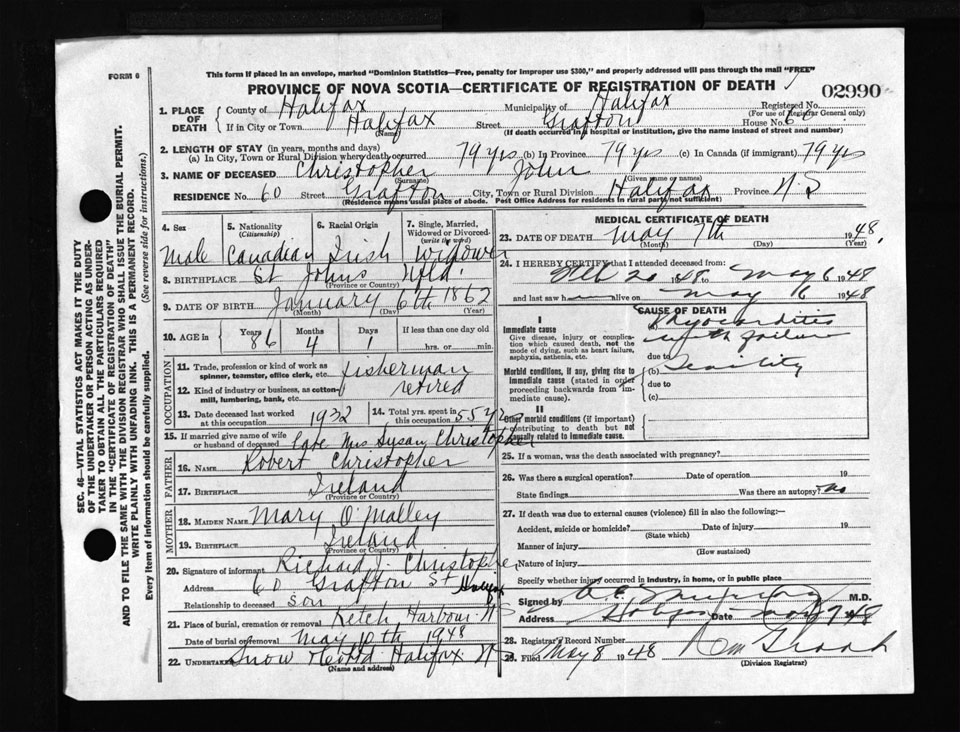 FORM 6
This form if placed in an envelope, marked "Dominion Statistics—Free, penalty for improper use $300," and properly addressed will pass through the mail "FREE"
PROVINCE OF NOVA SCOTIA—CERTIFICATE OF REGISTRATION OF DEATH
02990
1. PLACE OF DEATH
County of Halifax Municipality of Halifax Registered No.
(For use of Registrar General only)
If in City or Town Halifax Street Grafton House No. 60
(Name) (If death occurred in a hospital or institution, give the name instead of street and number)
2. LENGTH OF STAY (in years, months and days)
(a) In City, Town or Rural Division where death occurred 79 yrs (b) In Province 79 yrs (c) In Canada (if immigrant) 79 yrs
3. NAME OF DECEASED Christopher John
(Surname) (Given name or names)
RESIDENCE No. 60 Street Grafton City, Town or Rural Division Halifax Province N.S
(Residence means usual place of abode. Post Office Address for residents in rural parts not sufficient)
4. Sex 5. Nationality (Citizenship) 6. Racial Origin 7. Single, Married, Widowed or Divorced (write the word)
Male Canadian Irish Widower
8. BIRTHPLACE St Johns Nfld.
(Province or Country)
9. DATE OF BIRTH January 6th 1862
(Month) (Day) (Year)
10. AGE in Years 86 Months 4 Days 1 If less than one day old
hrs. or min.
OCCUPATION
11. Trade, profession or kind of work as spinner, teamster, office clerk, etc. fisherman
12. Kind of industry or business, as cotton-mill, lumbering, bank, etc. retired
13. Date deceased last worked at this occupation 1932 14. Total yrs. spent in this occupation 55 yrs
15. If married give name of wife or husband of deceased Late Mrs Susan Christopher
FATHER
16. NAME Robert Christopher
17. BIRTHPLACE Ireland
(Province or Country)
MOTHER
18. MAIDEN NAME Mary O'Malley
19. BIRTHPLACE Ireland
(Province or Country)
20. Signature of informant Richard J. Christopher
Address 60 Grafton St Halifax
Relationship to deceased son
21. Place of burial, cremation or removal Ketch Harbour N S
Date of burial or removal May 10th 1948
22. UNDERTAKER Snow Halifax N S
(Name and address)
MEDICAL CERTIFICATE OF DEATH
23. DATE OF DEATH May 7th 1948,
(Month) (Day) (Year)
24. I HEREBY CERTIFY that I attended deceased from:
Feb 20 1948 to May 6 1948
and last saw h alive on May 6 1948
CAUSE OF DEATH
I
Immediate cause
Give disease, injury or complication which caused death, not the mode of dying, such as heart failure, asphyxia, asthenia, etc.
Myocarditis
with failure
due to
Morbid conditions, if any, giving rise to immediate cause (stated in order proceeding backwards from immediate cause).
(b) Senility
due to
(c)
II
Other morbid conditions (if important) contributing to death but not causally related to immediate cause.
25. If a woman, was the death associated with pregnancy?
26. Was there a surgical operation? Date of operation 19
State findings Was there an autopsy? no
27. If death was due to external causes (violence) fill in also the following:—
Accident, suicide or homicide? Date of injury 19
(State which)
Manner of injury
(How sustained)
Nature of injury
Specify whether injury occurred in industry, in home, or in public place
Signed by M.D.
Address Date May 7 1948
28. Registrar's Record Number
29. Filed May 8 1948
(Division Registrar)
SEC. 46—VITAL STATISTICS ACT MAKES IT THE DUTY OF THE UNDERTAKER OR PERSON ACTING AS UNDERTAKER TO OBTAIN ALL THE PARTICULARS REQUIRED IN THE "CERTIFICATE OF REGISTRATION OF DEATH"
AND TO FILE THE SAME WITH THE DIVISION REGISTRAR WHO SHALL ISSUE THE BURIAL PERMIT.
WRITE PLAINLY WITH UNFADING INK. THIS IS A PERMANENT RECORD.
Every item of information should be carefully supplied. (See reverse side for instructions.)